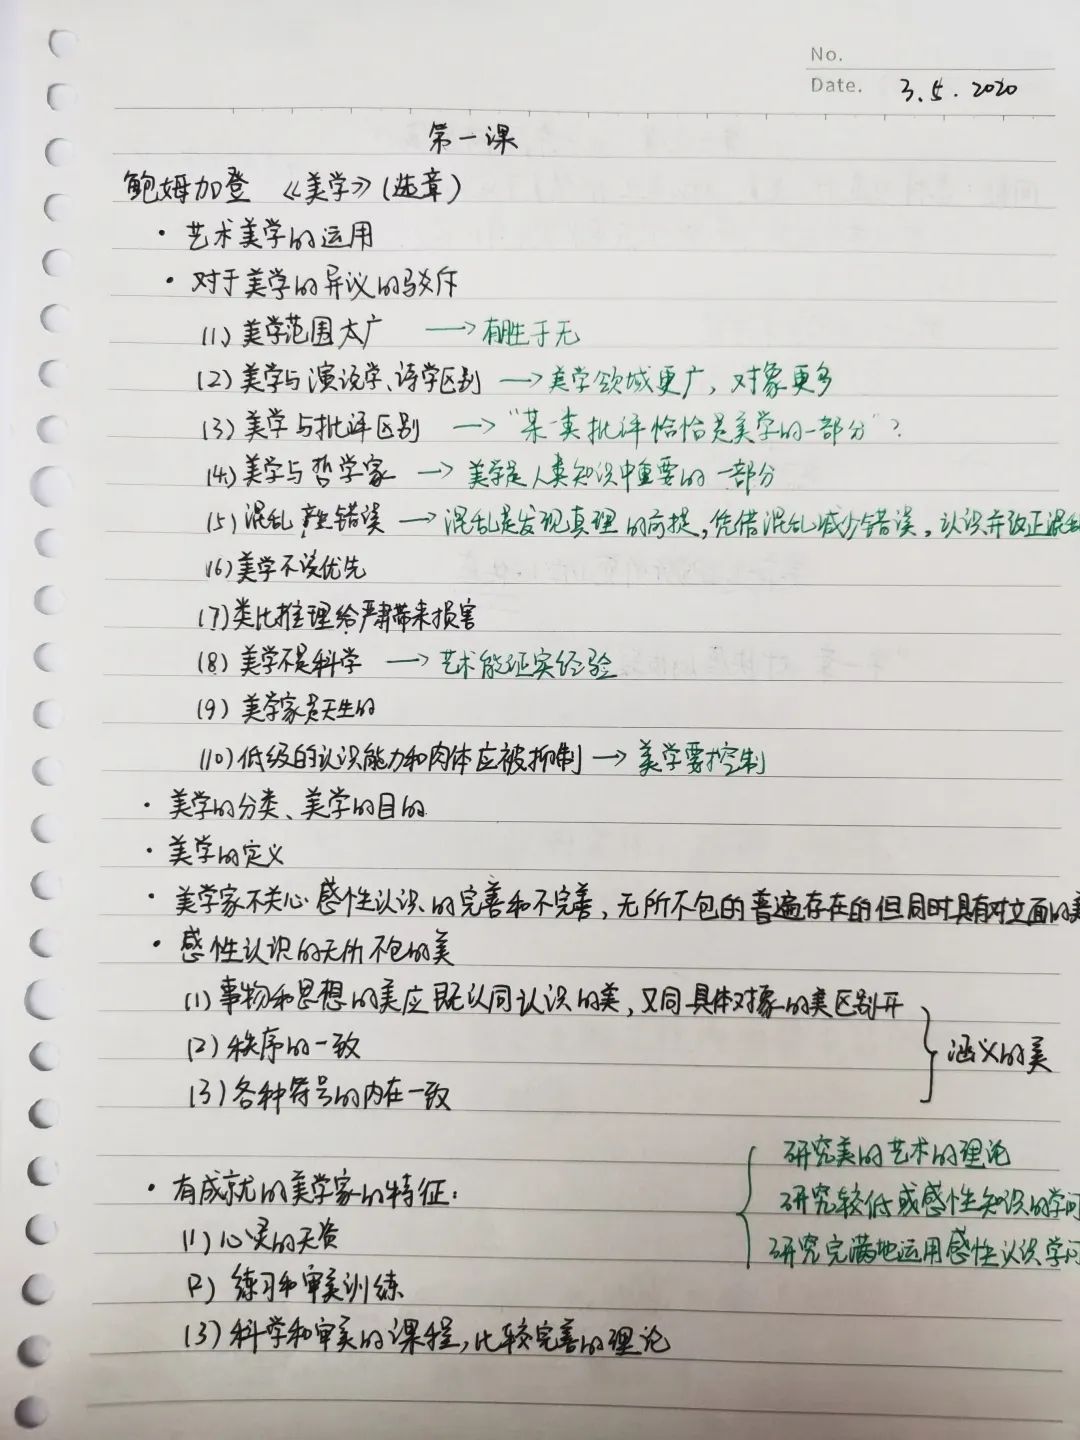 No.
Date. 3.5.2020
第一课
鲍姆加登 《美学》(选章)
· 艺术美学的运用
· 对于美学的异议的驳斥
(1) 美学范围太广 → 有胜于无
(2) 美学与演说学、诗学区别 → 美学领域更广，对象更多
(3) 美学与批评区别 → “某一类批评恰恰是美学的一部分”？
(4) 美学与哲学家 → 美学是人类知识中重要的一部分
(5) 混乱产生错误 → 混乱是发现真理的前提，凭借混乱减少错误，认识并改正混乱
(6) 美学不该优先
(7) 类比推理给严肃带来损害
(8) 美学不是科学 → 艺术能证实经验
(9) 美学家是天生的
(10) 低级的认识能力和肉体应被抑制 → 美学要控制
· 美学的分类、美学的目的
· 美学的定义
· 美学家不关心感性认识的完善和不完善，无所不包的普遍存在的但同时具有对立面的美
· 感性认识的无所不包的美
(1) 事物和思想的美应既认同认识的美，又同具体对象的美区别开
(2) 秩序的一致
涵义的美
(3) 各种符号的内在一致
研究美的艺术的理论
· 有成就的美学家的特征：
研究较低或感性知识的学问
(1) 心灵的天资
研究完满地运用感性认识学问
(2) 练习和审美训练
(3) 科学和审美的课程，比较完善的理论